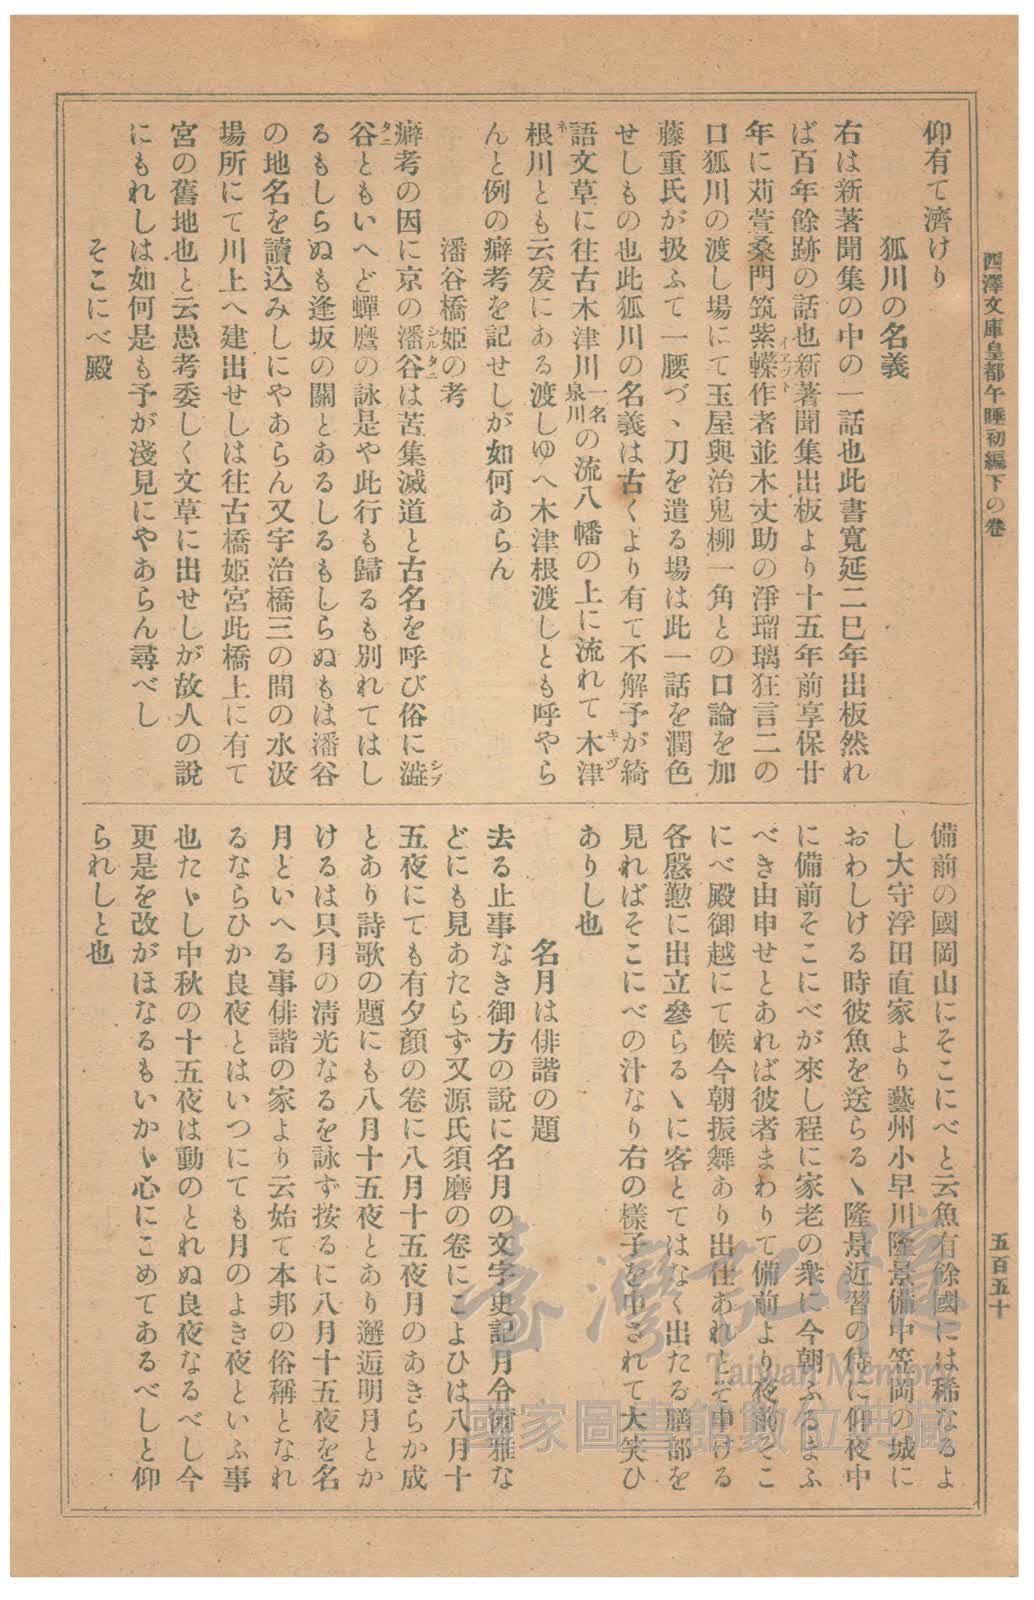 西澤文庫皇都午睡初編下の卷
五百五十
仰有て濟けり
狐川の名義
右は新著聞集の中の一話也此書寛延二巳年出板然れ
ば百年餘跡の話也新著聞集出板より十五年前享保廿
年に苅萱桑門筑紫轢イヱヅト作者並木丈助の淨瑠璃狂言二の
口狐川の渡し場にて玉屋與治鬼柳一角との口論を加
藤重氏が扱ふて一腰づヽ刀を遣る場は此一話を潤色
せしもの也此狐川の名義は古くより有て不解予が綺
語文草に往古木津川一名泉川の流八幡の上に流れて木津キヅ
根ネ川とも云爰にある渡しゆへ木津根渡しとも呼やら
んと例の癖考を記せしが如何あらん
潘谷橋姫の考
癖考の因に京の潘谷シルタニは苦集滅道と古名を呼び俗に澁シブ
谷タニともいへど蟬麿の詠是や此行も歸るも別れてはし
るもしらぬも逢坂の關とあるしるもしらぬもは潘谷
の地名を讀込みしにやあらん又宇治橋三の間の水汲
場所にて川上へ建出せしは往古橋姫宮此橋上に有て
宮の舊地也と云愚考委しく文草に出せしが故人の說
にもれしは如何是も予が淺見にやあらん尋べし
そこにべ殿
備前の國岡山にそこにべと云魚有餘國には稀なるよ
し大守浮田直家より藝州小早川隆景備中笠岡の城に
おわしける時彼魚を送らるヽ隆景近習の侍に仰夜中
に備前そこにべが來し程に家老の衆に今朝ふるまふ
べき由申せとあれば彼者まわりて備前より夜前そこ
にべ殿御越にて候今朝振舞あり出仕あれとぞ申ける
各慇懃に出立參らるヽに客とてはなく出たる膳部を
見ればそこにべの汁なり右の樣子を申されて大笑ひ
ありし也
名月は俳諧の題
去る止事なき御方の說に名月の文字史記月令術雅な
どにも見あたらず又源氏須磨の卷にこよひは八月十
五夜にても有夕顏の卷に八月十五夜月のあきらか成
とあり詩歌の題にも八月十五夜とあり邂逅明月とか
けるは只月の淸光なるを詠ず按るに八月十五夜を名
月といへる事俳諧の家より云始て本邦の俗稱となれ
るならひか良夜とはいつにても月のよき夜といふ事
也たヾし中秋の十五夜は動のとれぬ良夜なるべし今
更是を改がほなるもいかヾ心にこめてあるべしと仰
られしと也
臺灣記憶
Taiwan Memory
國家圖書館數位典藏